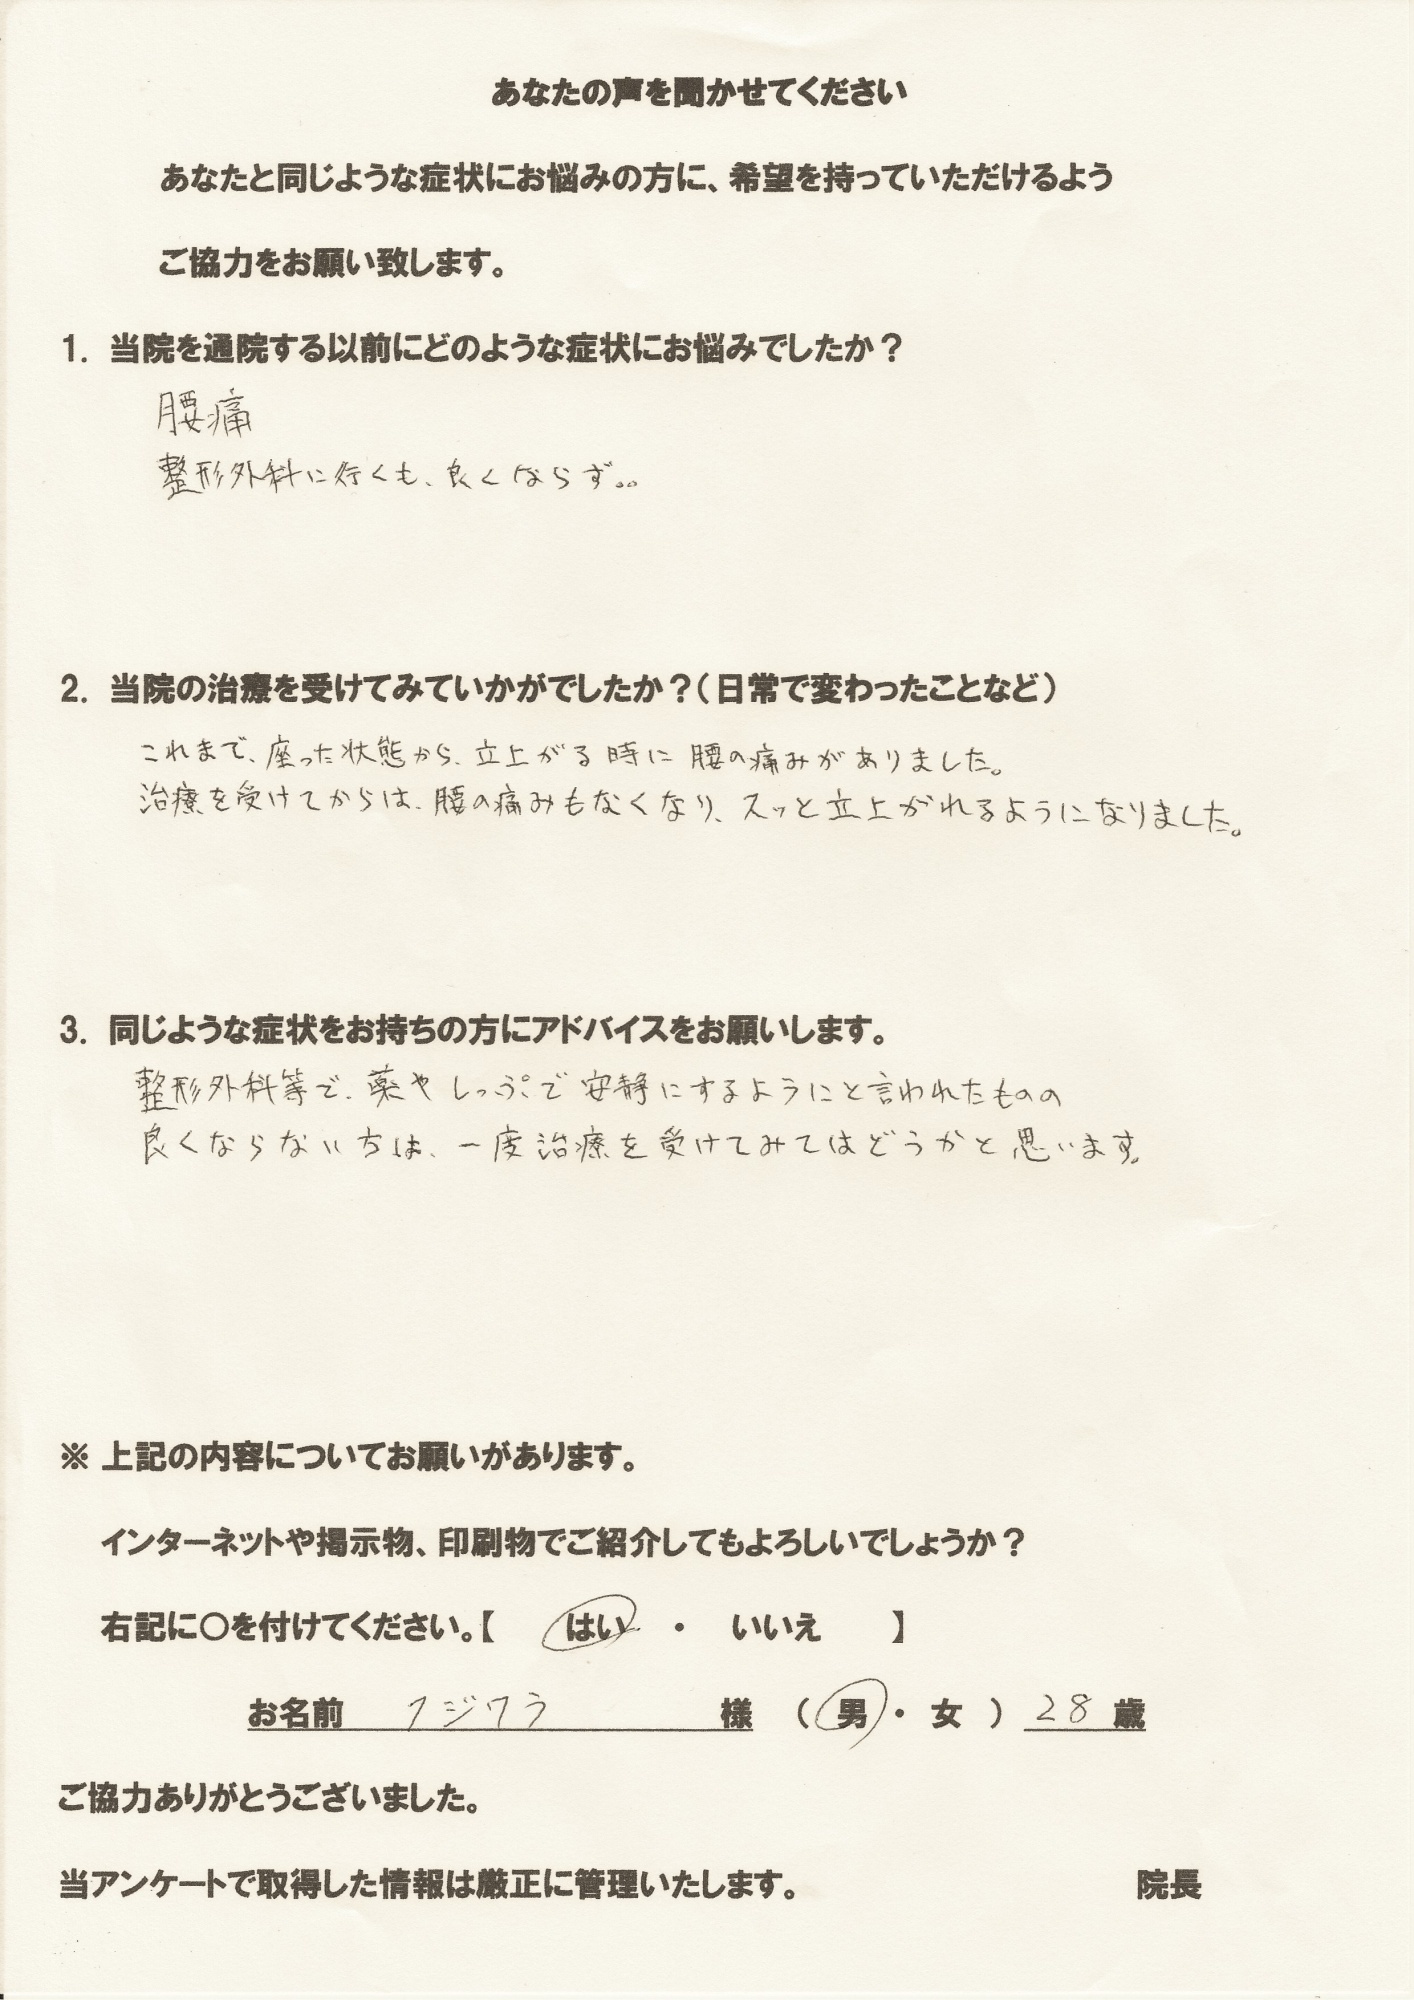 あなたの声を聞かせてください
あなたと同じような症状にお悩みの方に、希望を持っていただけるよう
ご協力をお願い致します。
1. 当院を通院する以前にどのような症状にお悩みでしたか？
腰痛
整形外科に行くも、良くならず。。
2. 当院の治療を受けてみていかがでしたか？（日常で変わったことなど）
これまで、座った状態から、立上がる時に腰の痛みがありました。
治療を受けてからは、腰の痛みもなくなり、スッと立上がれるようになりました。
3. 同じような症状をお持ちの方にアドバイスをお願いします。
整形外科等で、薬やしっぷで安静にするようにと言われたものの
良くならない方は、一度治療を受けてみてはどうかと思います。
※ 上記の内容についてお願いがあります。
インターネットや掲示物、印刷物でご紹介してもよろしいでしょうか？
右記に〇を付けてください。【 はい ・ いいえ 】
お名前 フジワラ 様 （ 男 ・ 女 ） 28 歳
ご協力ありがとうございました。
当アンケートで取得した情報は厳正に管理いたします。 院長